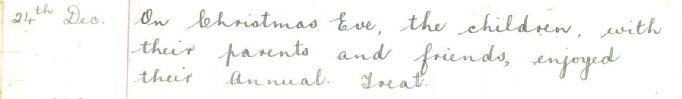 24th Dec. On Christmas Eve, the children, with
their parents and friends, enjoyed
their Annual. Treat.